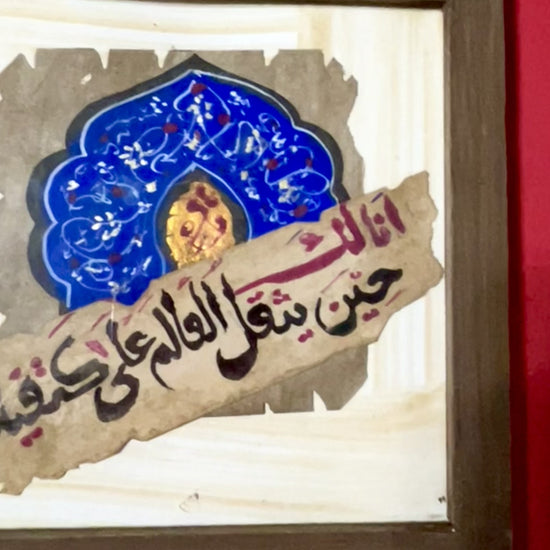 انا لك
حين يثقل العالم على كتفيك